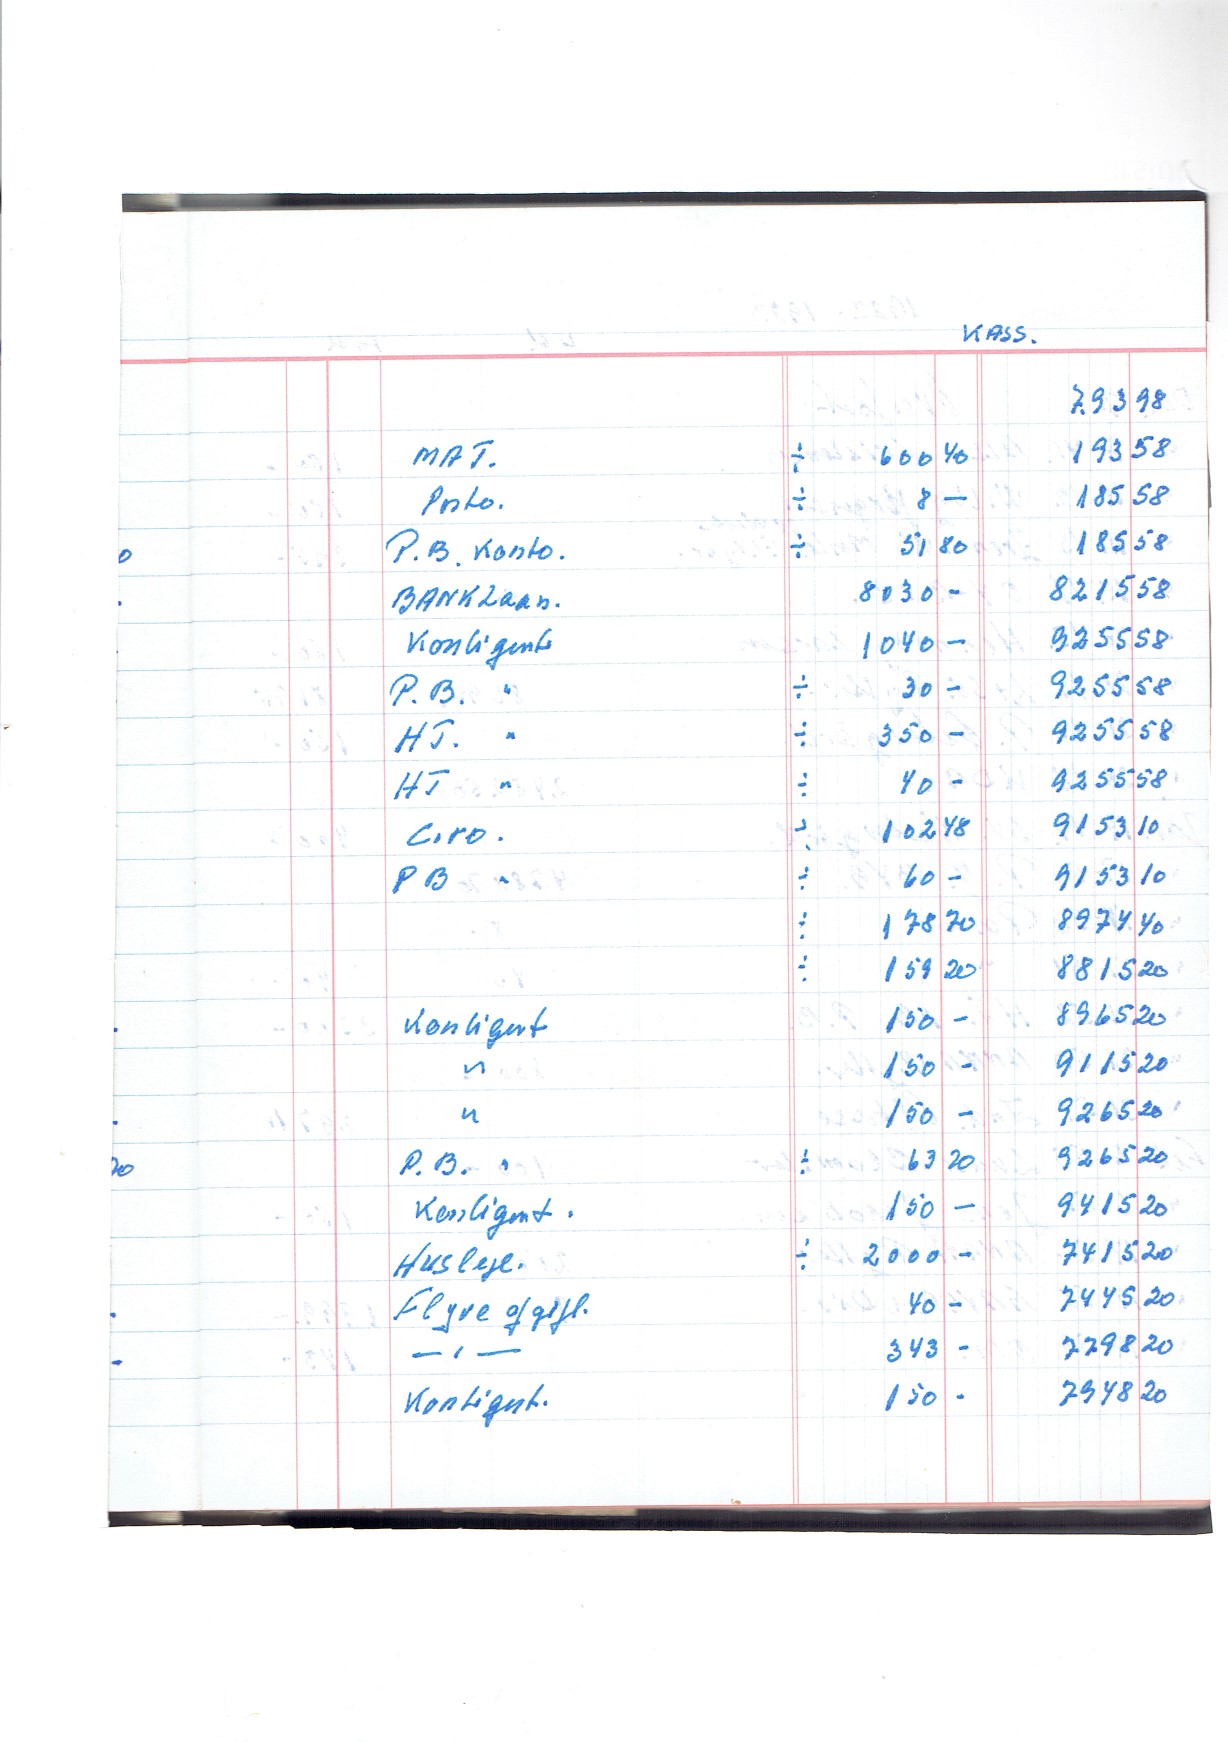 KASS.
793 98
MAT. ÷ 600 40 193 58
Porto. ÷ 8 — 185 58
P.B. Konto. ÷ 51 80 185 58
BANKLaan. 8030 - 8215 58
Kontigent 1040 - 9255 58
P.B. " ÷ 30 - 9255 58
HT. " ÷ 350 - 9255 58
HT " ÷ 40 - 9255 58
Ciro. ÷ 102 48 9153 10
PB " ÷ 60 - 9153 10
÷ 178 70 8974 40
÷ 159 20 8815 20
Kontigent 150 - 8965 20
" 150 - 9115 20
" 150 - 9265 20
P.B. " ÷ 63 20 9265 20
Kontigent. 150 - 9415 20
Husleje. ÷ 2000 - 7415 20
Flyve afgift. 40 - 7455 20
— " — 343 - 7798 20
Kontigent. 150 - 7948 20